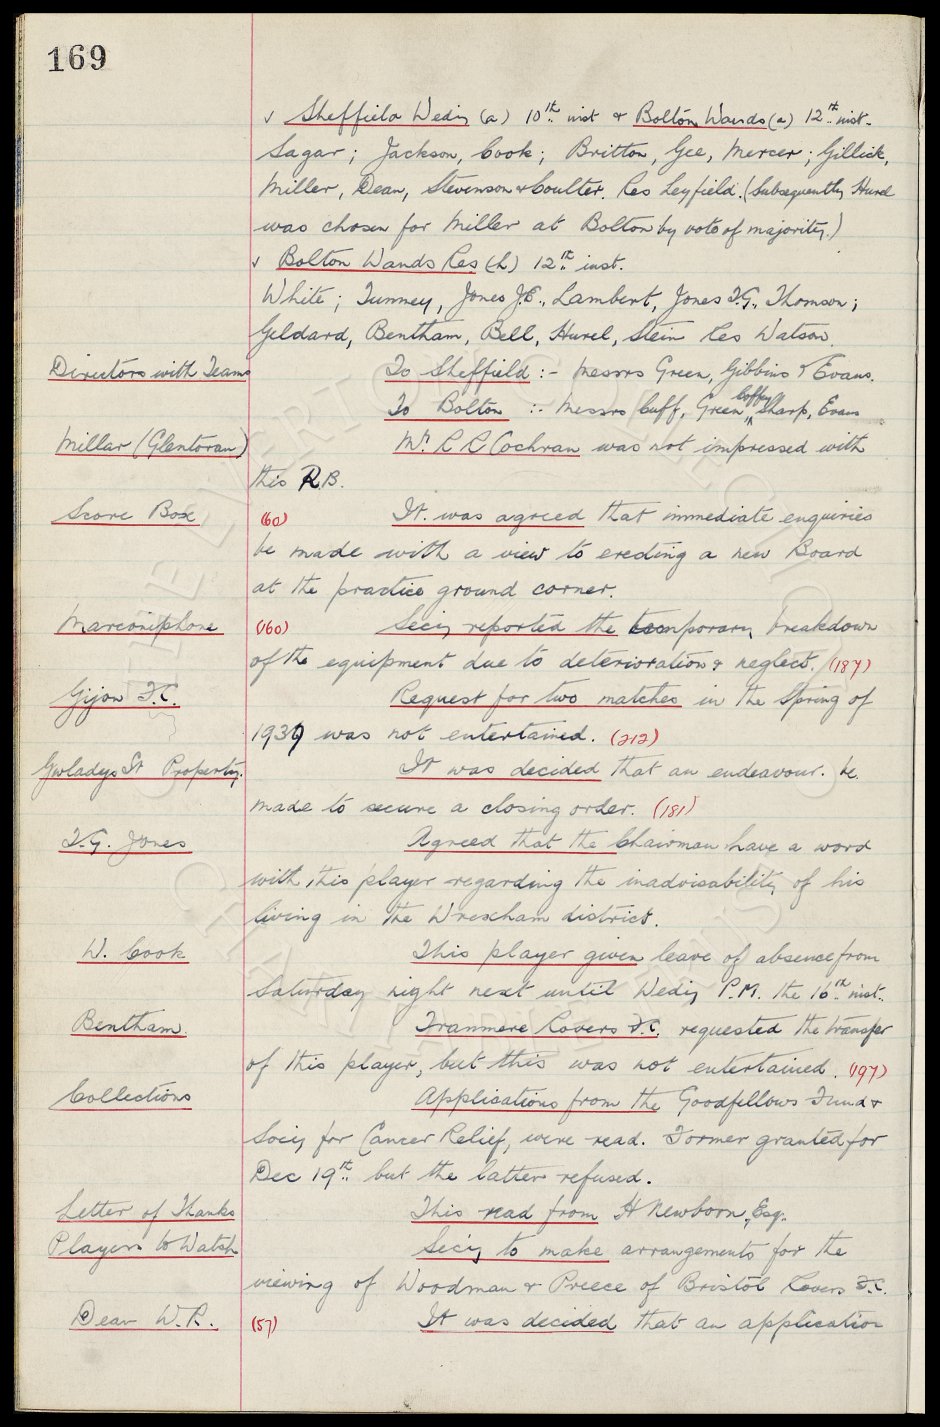 169
v Sheffield Wedy (a) 10th inst & Bolton Wands (a) 12th inst.
Sagar; Jackson, Cook; Britton, Gee, Mercer; Gillick,
Miller, Dean, Stevenson & Coulter. Res Leyfield. (Subsequently Hurel
was chosen for Miller at Bolton by vote of majority.)
v Bolton Wands Res (h) 12th inst.
White; Tunney, Jones J.E., Lambert, Jones T.G., Thomson;
Geldard, Bentham, Bell, Hurel, Stein Res Watson.
Directors with Teams To Sheffield :- Messrs Green, Gibbins & Evans.
To Bolton :- Messrs Cuff, Green, Coffey, Sharp, Evans
Millar (Glentoran) Mr. R R Cochran was not impressed with
this R.B.
Score Box (60) It was agreed that immediate enquiries
be made with a view to erecting a new Board
at the practice ground corner.
Marconiphone (160) Secy reported the temporary breakdown
of the equipment due to deterioration & neglect. (187)
Gijon F.C. Request for two matches in the Spring of
1939 was not entertained. (212)
Gwladys St Property. It was decided that an endeavour. be
made to secure a closing order. (181)
T.G. Jones Agreed that the Chairman have a word
with this player regarding the inadvisability of his
living in the Wrexham district.
W. Cook This player given leave of absence from
Saturday night next until Wedy P.M. the 16th inst.
Bentham. Tranmere Rovers F.C. requested the transfer
of this player, but this was not entertained. (197)
Collections Applications from the Goodfellows Fund &
Socy for Cancer Relief, were read. Former granted for
Dec 19th but the latter refused.
Letter of Thanks This read from H Newborn, Esq.
Players to Watch Secy to make arrangements for the
viewing of Woodman & Preece of Bristol Rovers F.C.
Dean W.R. (57) It was decided that an application